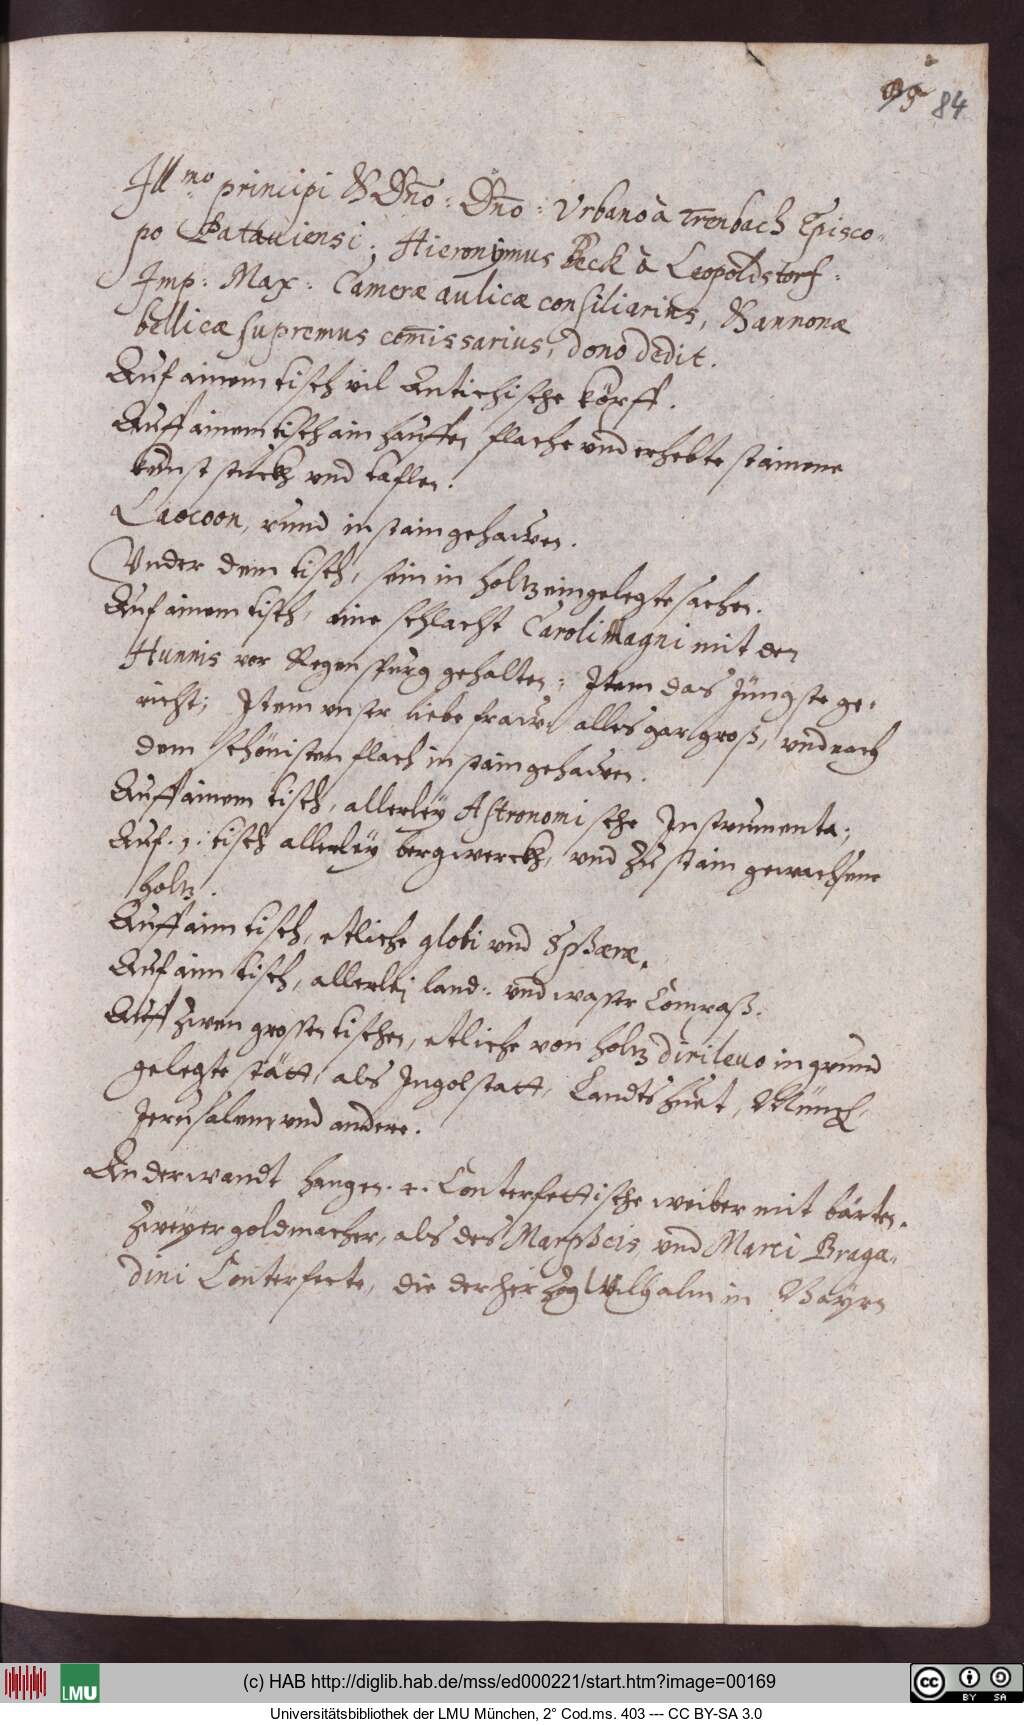 84
Ill.mo principi & Dño: Dño: Vrbano à Trenbach Episco-
po Patauiensi; Hieronymus Beck à Leopoldstorf:
Imp: Max: Cameræ aulicæ consiliarius, & annonæ
bellicæ supremus com̄issarius, dono dedit.
Auf ainem tisch vil Antichische körff.
Auff ainem tisch ain hauffen flache vnd erhebte stainene
kunst stuckh vnd taflen.
Laocoon, rund in stain gehawen.
Vnder dem tisch, sein in holtz eingelegte sachen.
Auf ainem tisch, eine schlacht Caroli Magni mit den
Hunnis vor Regenspurg gehalten; Item das Jüngste ge-
richt; Item vnser liebe fraw alles gar groß, vnd nach
dem schönisten flach in stain gehawen.
Auff ainem tisch, allerley Astronomische Instrumenta;
Auf .1. tisch allerley bergwerckh, vnd zu stain gewachsene
holtz.
Auff aim tisch, etliche globi vnd Sphæræ.
Auf aim tisch, allerlei land: vnd wasser Compaß.
Auff zwen grossen tischen, etliche von holtz di rileuo in grund
gelegte stätt, als Ingolstatt, Landtshuet, Münch,
Jerusalem, vnd andere.
An der wandt hangen .2. Conterfettische weiber mit bärten.
Zweyer goldmacher, als des Marpheis vnd Marci Braga-
dini Conterfecte, die der herzog Wilhalm in Bayrn
(c) HAB http://diglib.hab.de/mss/ed000221/start.htm?image=00169
LMU
cc BY SA
Universitätsbibliothek der LMU München, 2° Cod.ms. 403 --- CC BY-SA 3.0